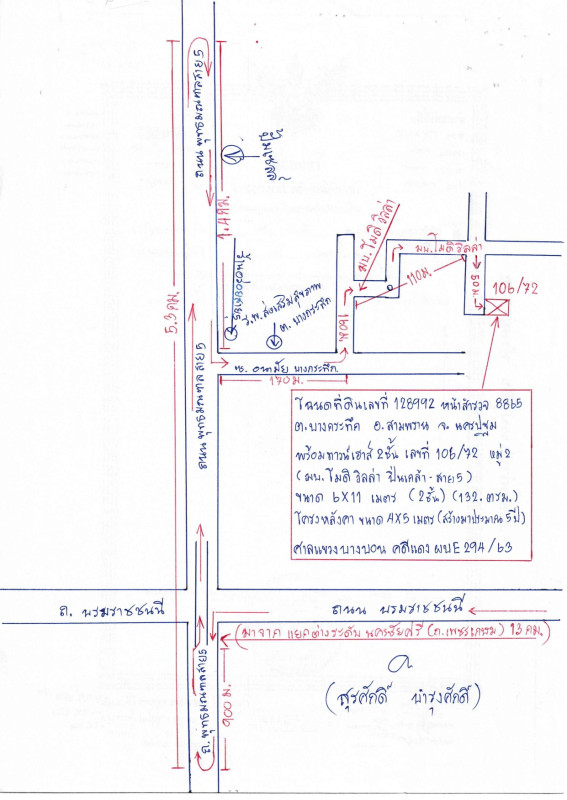 ถนน พุทธมณฑลสาย 5
1.4 กม.
5.3 กม.
ร.พ. ส่งเสริมสุขภาพ
ต. บางกระทึก
มบ. โมดิ วิลล่า
มบ. โมดิ วิลล่า
110 ม.
50 ม.
106/72
160 ม.
ซ. อนามัย บางกระทึก
170 ม.
ถนน พุทธมณฑล สาย 5
โฉนดที่ดินเลขที่ 128992 หน้าสำรวจ 8865
ต.บางกระทึก อ.สามพราน จ. นครปฐม
พร้อมทาวน์เฮาส์ 2 ชั้น เลขที่ 106/72 หมู่ 2
(มบ. โมดิ วิลล่า ปิ่นเกล้า-สาย 5)
ขนาด 6X11 เมตร (2 ชั้น) (132. ตรม.)
โครงหลังคา ขนาด 4X5 เมตร (สร้างมาประมาณ 5 ปี)
ศาลแขวงบางบอน คดีแดง ผบE 294/63
ถ. บรมราชชนนี
ถนน บรมราชชนนี
(มาจาก แยกต่างระดับ นครชัยศรี (ถ.เพชรเกษม) 13 กม.)
ถ. พุทธมณฑลสาย 5
900 ม.
(สุรศักดิ์ บำรุงศักดิ์)